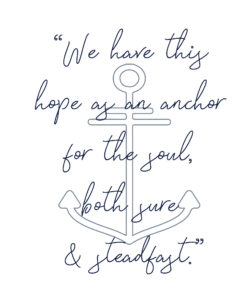 “We have this
hope as an anchor
for the soul,
both sure
& steadfast.”